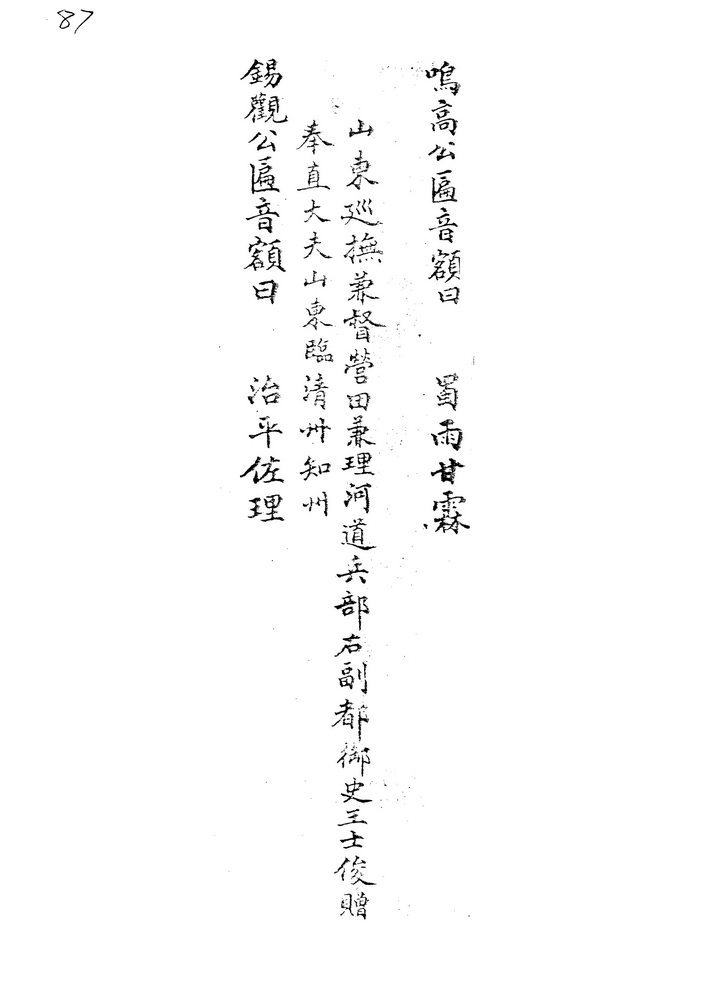 87
鳴高公匾音額曰 蜀雨甘霖
山東廵撫兼督營田兼理河道兵部右副都御史王士俊贈
奉直大夫山東臨清州知州
錫觀公匾音額曰 治平佐理